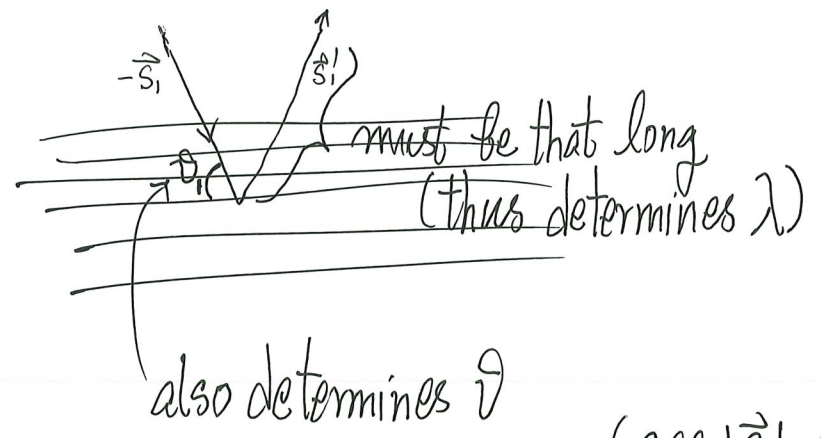 -s⃗₁
s⃗₁'
ϑ₁
must be that long
(thus determines λ)
also determines ϑ